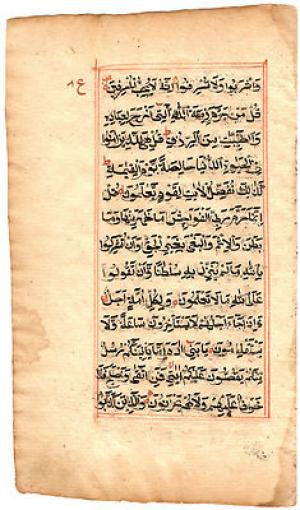 وَاشْرَبُوا وَلَا تُسْرِفُوا اِنَّهُ لَا يُحِبُّ الْمُسْرِفِينَ
قُلْ مَنْ حَرَّمَ زِينَةَ اللّٰهِ الَّتِي اَخْرَجَ لِعِبَادِهِ
وَالطَّيِّبٰتِ مِنَ الرِّزْقِ قُلْ هِيَ لِلَّذِينَ اٰمَنُوا
فِي الْحَيٰوةِ الدُّنْيَا خَالِصَةً يَوْمَ الْقِيٰمَةِ
كَذٰلِكَ نُفَصِّلُ الْاٰيٰتِ لِقَوْمٍ يَعْلَمُونَ قُلْ
اِنَّمَا حَرَّمَ رَبِّيَ الْفَوَاحِشَ مَا ظَهَرَ مِنْهَا وَمَا
بَطَنَ وَالْاِثْمَ وَالْبَغْيَ بِغَيْرِ الْحَقِّ وَاَنْ تُشْرِكُوا
بِاللّٰهِ مَا لَمْ يُنَزِّلْ بِهِ سُلْطٰنًا وَاَنْ تَقُولُوا
عَلَى اللّٰهِ مَا لَا تَعْلَمُونَ وَلِكُلِّ اُمَّةٍ اَجَلٌ
فَاِذَا جَاءَ اَجَلُهُمْ لَا يَسْتَاْخِرُونَ سَاعَةً وَلَا
يَسْتَقْدِمُونَ يٰبَنِي اٰدَمَ اِمَّا يَاْتِيَنَّكُمْ رُسُلٌ
مِنْكُمْ يَقُصُّونَ عَلَيْكُمْ اٰيٰتِي فَمَنِ اتَّقٰى وَاَصْلَحَ فَلَا
خَوْفٌ عَلَيْهِمْ وَلَا هُمْ يَحْزَنُونَ وَالَّذِينَ كَذَّبُوا